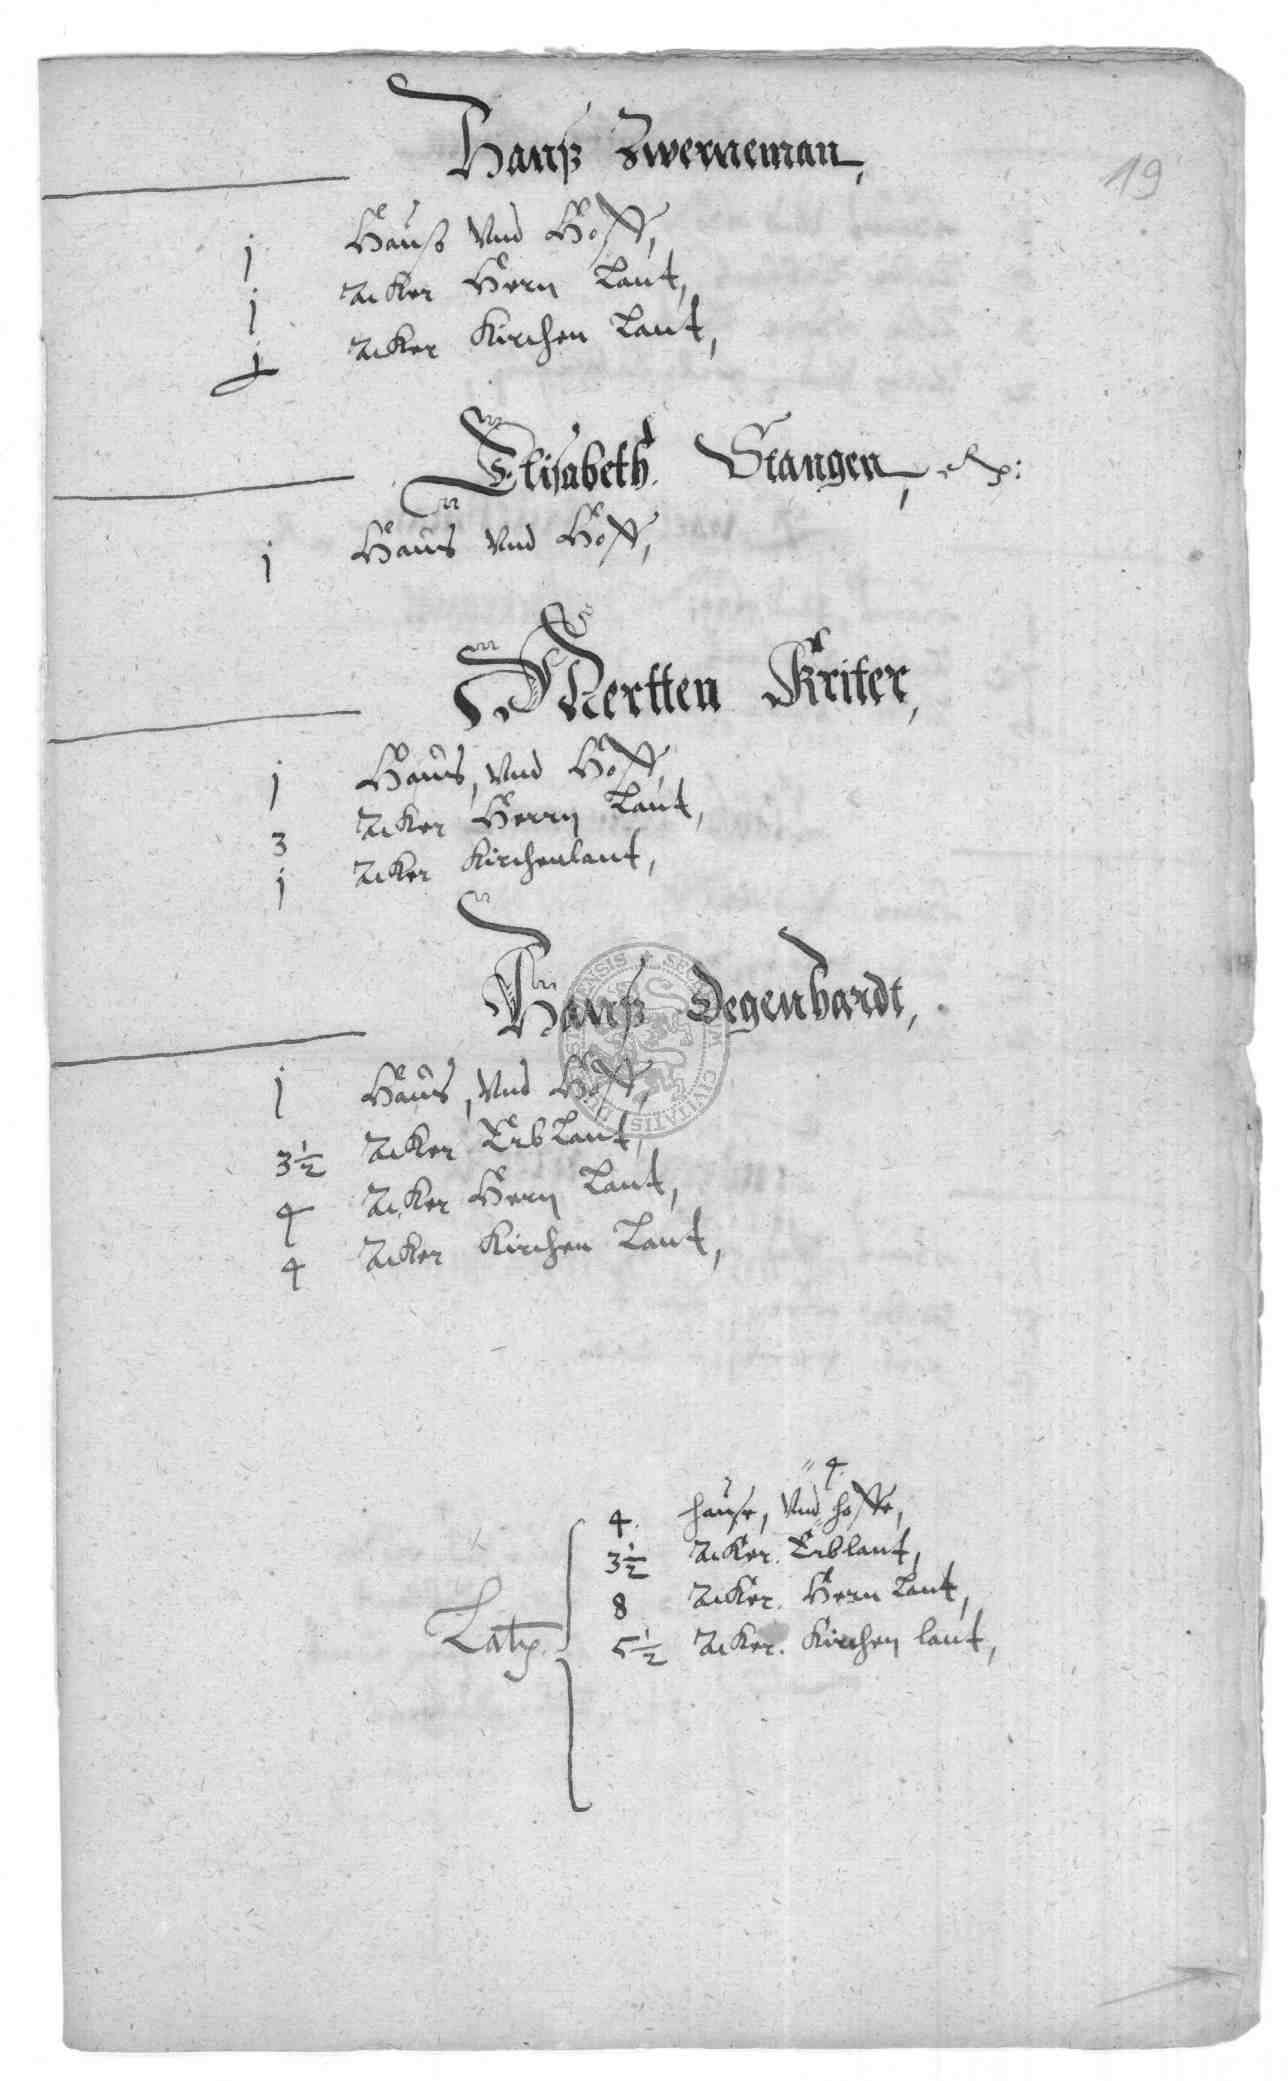 Hanß Zwerneman,
19
j Hauß Vnd Hoff,
j Acker Hern Lant,
½ Acker Kirchen Lant,
Elisabeth Stangen,
j Haus Vnd Hoff,
Mertten Kriter,
j Haus, Vnd Hoff,
3 Acker Herrn Lant,
j Acker Kirchenlant,
Hanß Degenhardt,
j Haus, Vnd Hoff,
3½ Acker Erb Lant,
4 Acker Hern Lant,
4 Acker Kirchen Lant,
4.
4. hause, Vnd hoffe,
3½ Acker. Erblant,
8 Acker. Hern Lant,
Latus. 5½ Acker. Kirchen lant,